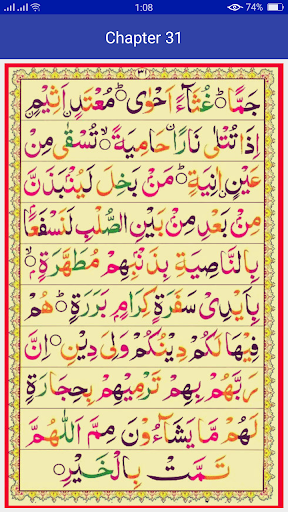 1:08 74%
Chapter 31
٣١
جَمًّا ۝ غُثَآءً اَحْوٰى ۝ مُعْتَدٍ اَثِيْمٍ
اِذَا تُتْلٰى نَارًا حَامِيَةً ۝ تُسْقٰى مِنْ
عَيْنٍ اٰنِيَةٍ ۝ مَنْۢ بَخِلَ لَيُنْۢبَذَنَّ
مِنْۢ بَعْدِ مِنْۢ بَيْنِ الصُّلْبِ لَنَسْفَعًا
بِالنَّاصِيَةِ بِذَنْۢبِهِمْ مُطَهَّرَةٍ ۝
بِاَيْدِيْ سَفَرَةٍ كِرَامٍۢ بَرَرَةٍ ۝ هُمْ
فِيْهَا لَكُمْ دِيْنُكُمْ وَلِيَ دِيْنِ ۝ اِنَّ
رَبَّهُمْ بِهِمْ تَرْمِيْهِمْ بِحِجَارَةٍ
لَهُمْ مَا يَشَآءُوْنَ مِمَّ اللّٰهُمَّ
تَمَّتْ بِالْخَيْرِ ۝